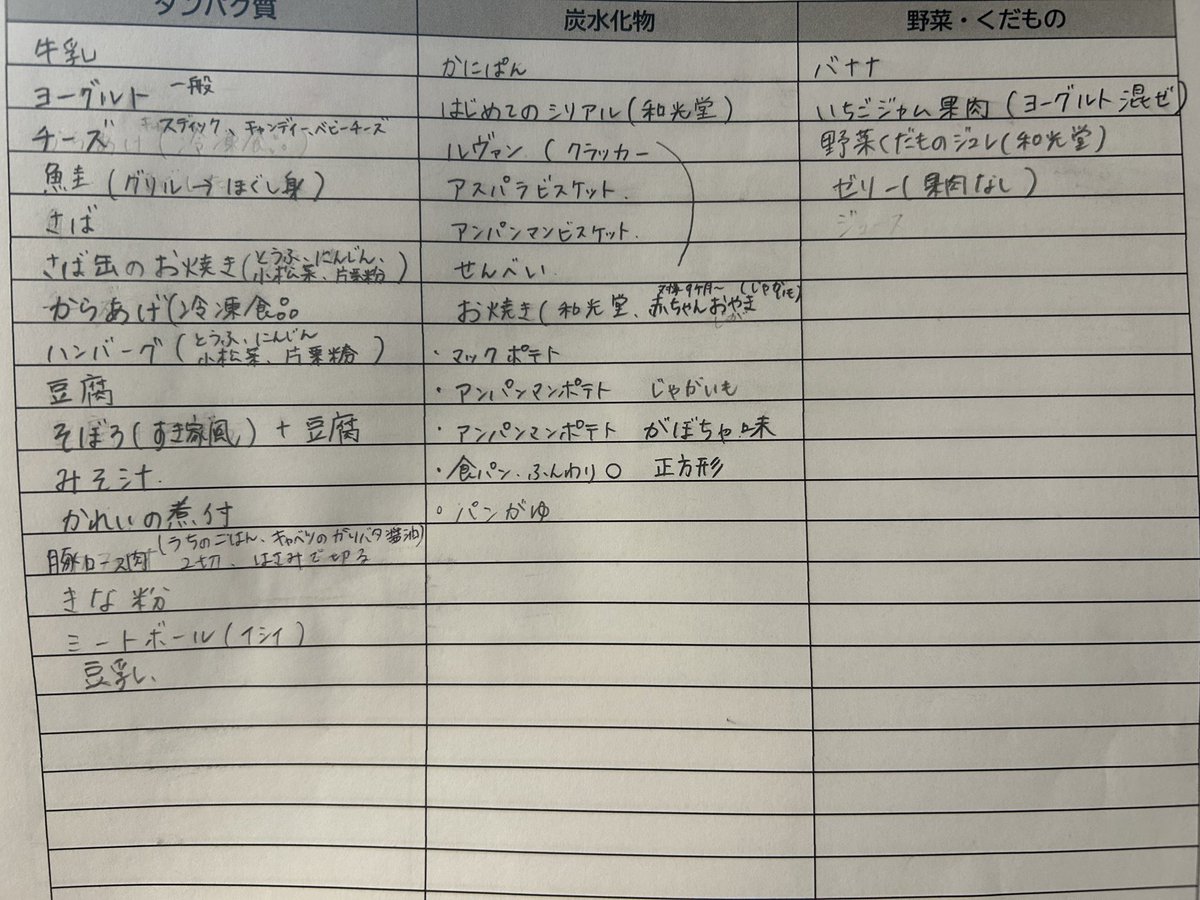 タンパク質
牛乳
ヨーグルト 一般
チーズ スティック、キャンディー、ベビーチーズ
鮭 (グリル→ほぐし身)
さば
さば缶のお焼き(とうふ、にんじん、
小松菜、片栗粉)
からあげ(冷凍食品
ハンバーグ(とうふ、にんじん
小松菜、片栗粉)
豆腐
そぼろ(すき家風)+豆腐
みそ汁.
かれいの煮付
豚ロース肉 (うちのごはん、キャベツのガリバタ醤油)
2切、はさみで切る
きな粉
ミートボール(イシイ)
豆乳.
炭水化物
かにぱん
はじめてのシリアル(和光堂)
ルヴァン (クラッカー
アスパラビスケット.
アンパンマンビスケット.
せんべい
お焼き(和光堂、赤ちゃんおやき
9ヶ月〜 (じゃがいも)
・マックポテト
・アンパンマンポテト じゃがいも
・アンパンマンポテト かぼちゃ味
・食パン.ふんわり○ 正方形
・パンがゆ
野菜・くだもの
バナナ
いちごジャム果肉(ヨーグルト混ぜ)
野菜くだものジュレ(和光堂)
ゼリー(果肉なし)
ジュース